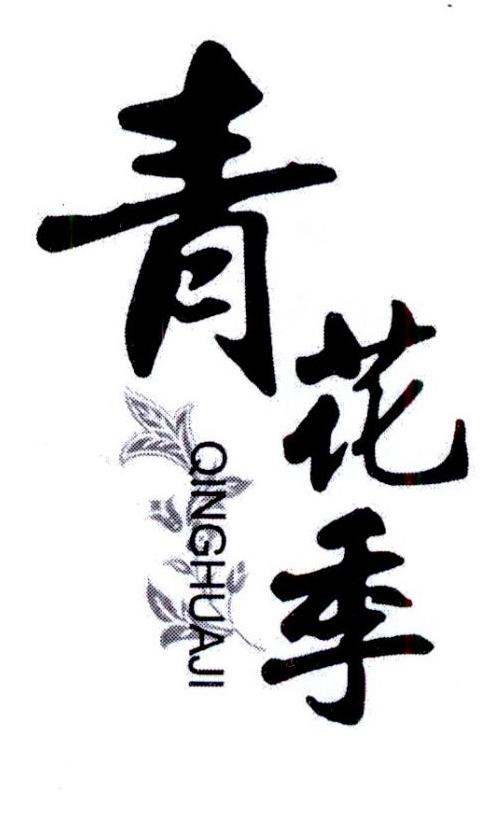 青花季
QINGHUAJI